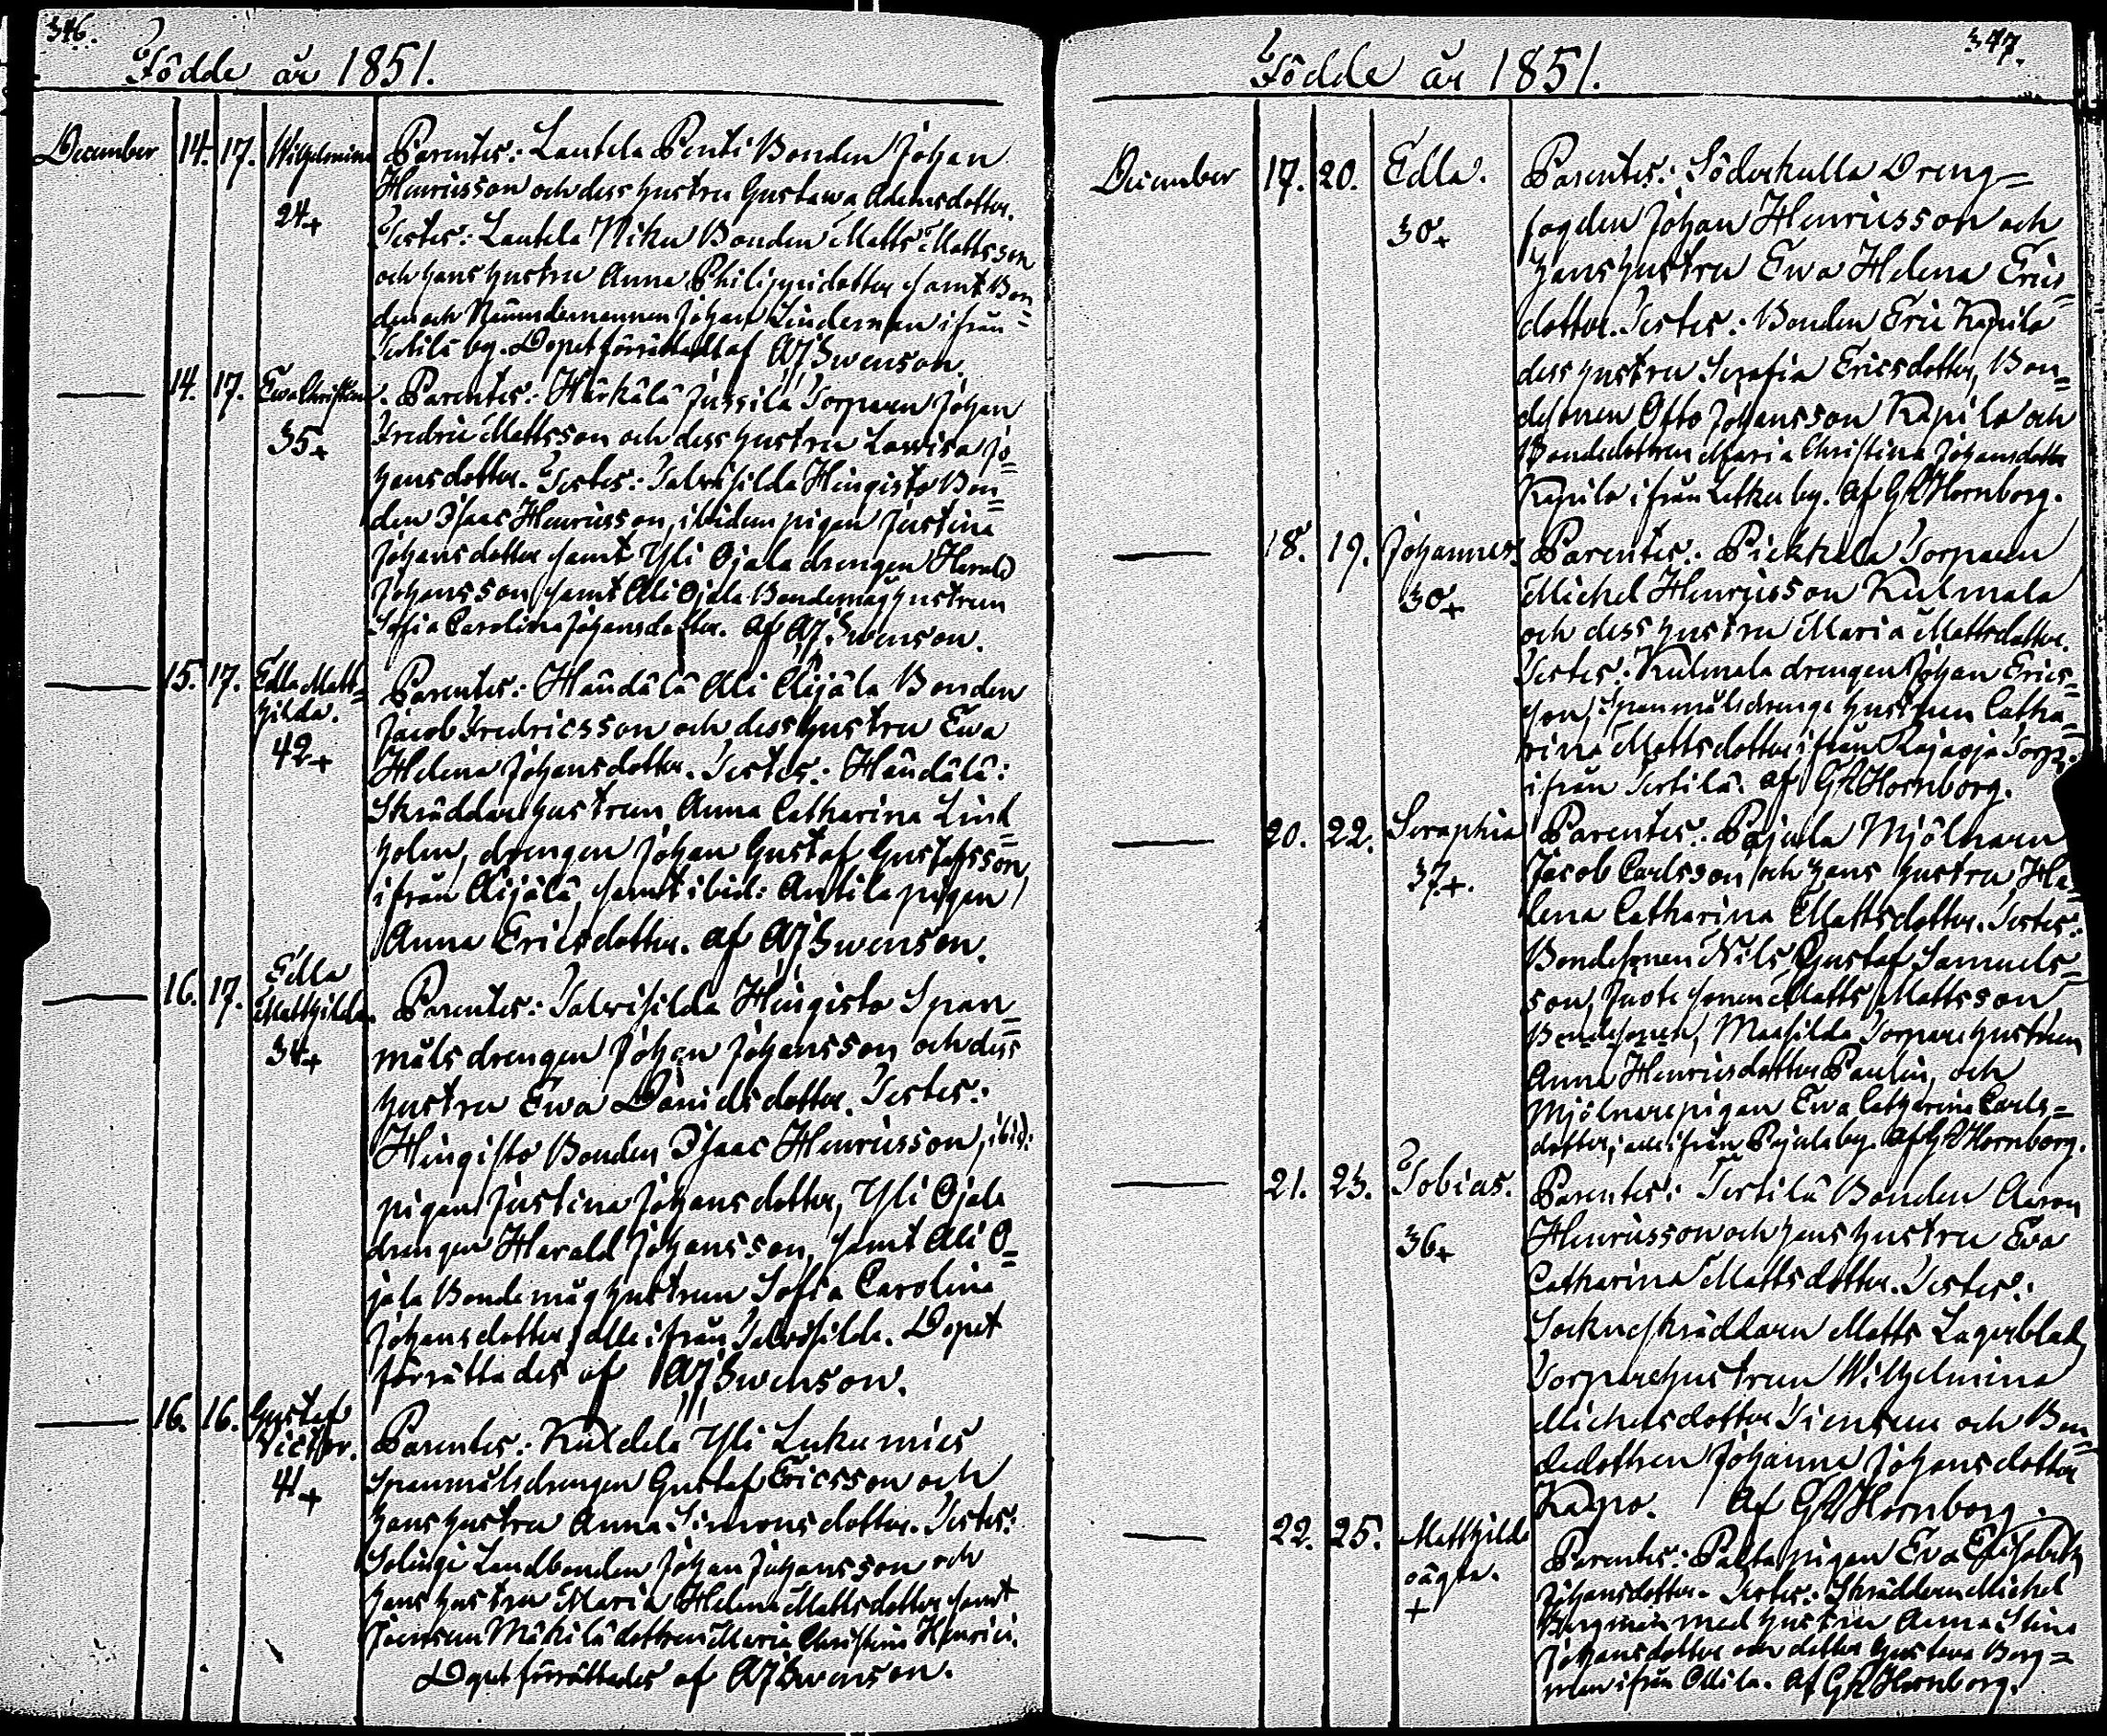 346.
Födde år 1851.
December 14. 17. Wilhelmina Parentes: Lautela Penti Bonden Johan
Henricsson och dess hustru Gustawa Adamsdotter.
24+
Testes: Lautela Niku Bonden Matts Mattsson
och hans hustru Anna Philippsdotter samt Bon=
den och Nämndemannen Johan Lindeman ifrån
Tertilä by. Dopet förrättadt af AJSwenson.
— 14. 17. Ewa Christina. Parentes: Härkälä Jussila Torparn Johan
Fredric Mattsson och dess hustru Lowisa Jo=
35+
hansdotter. Testes: Talwisilda Hingisto Bon=
den Isaac Henricsson, ibidem pigan Justina
Johansdotter samt Yli Ojala drengen Herald
Johansson samt Ali Ojala Bondemåghustrun
Sofia Carolina Johansdotter. af AJSwenson.
— 15. 17. Edla Matt=
hilda.
42+
Parentes: Händälä Ali Äijälä Bonden
Jacob Fredricsson och dess hustru Ewa
Helena Johansdotter. Testes: Händälä:
Skräddarehustrun Anna Catharina Lind=
holm, drengen Johan Gustaf Gustafsson
ifrån Äijälä, samt ibid: Antila pigan
Anna Ericsdotter. af AJSwenson.
— 16. 17. Edla
Matthilda.
34+
Parentes: Talwisilda Hingisto Span=
måls drengen Johan Johansson och dess
hustru Ewa Danielsdotter. Testes:
Hingisto Bonden Isaac Henricsson, ibid:
pigan Justina Johansdotter, Yli Ojala
drengen Harald Johansson, samt Ali O=
jala Bondemåghustrun Sofia Carolina
Johansdotter, alle ifrån Talwisilda. Dopet
förrättades af AJSwenson.
— 16. 16. Gustaf
Victor.
41+
Parentes: Yli Lukumies
Spanmålsdrengen Gustaf Ericsson och
hans hustru Anna Simonsdotter. Testes:
Landbonden Johan Johansson och
hans hustru Maria Helena Mattsdotter samt
Mäkilä dottren Maria Christina Henrici.
Dopet förrättades af AJSwenson.
347.
Födde år 1851.
December 17. 20. Edla. Parentes: Söderkulla Dreng=
30+
fogden Johan Henricsson och
hans hustru Ewa Helena Erics=
dotter. Testes: Bonden Eric Kapila
dess hustru Serafia Ericsdotter, Bon=
desonen Otto Johansson Kapila och
Bondedottren Maria Christina Johansdotter
Kapila ifrån Letku by. af GAHornborg.
— 18. 19. Johannes. Parentes: Piekkala Torparn
30+
Michel Henricsson Kulmala
och dess hustru Maria Mattsdotter.
Testes: Kulmala drengen Johan Erics=
son, Spanmålsdrenge hustrun Catha=
rina Mattsdotter ifrån Rajaoja Torp,
ifrån Tertilä. af GAHornborg.
— 20. 22. Seraphia Parentes: Pajula Mjölnarn
37.+.
Jacob Carlsson och hans hustru He=
lena Catharina Mattsdotter. Testes:
Bondesonen Nils Gustaf Samuels=
son, sonen Matts Mattsson
Bondesonen, Torparehustrun
Anna Henricsdotter Paulin, och
Mjölnarepigan Ewa Catharina Carls=
dotter, alle ifrån Pajula by. af GAHornborg.
— 21. 23. Tobias. Parentes: Tertilä Bonden Aaron
36+
Henricsson och hans hustru Eva
Catharina Mattsdotter. Testes:
Sockneskräddarn Matts Lagerblad,
Torparehustrun Wilhelmina
Michelsdotter och Bon=
dedottren Johanna Johansdotter
Kapio. Af GAHornborg.
— 22. 25. Matthilda
oägta.
+
Parentes: Palta pigan Eva Elisabeth
Johansdotter. Testes: Skräddarn Michel
Bergman med hustru Anna Stina
Johansdotter och dotter Gustava Berg=
man ifrån Ollila. Af GAHornborg.